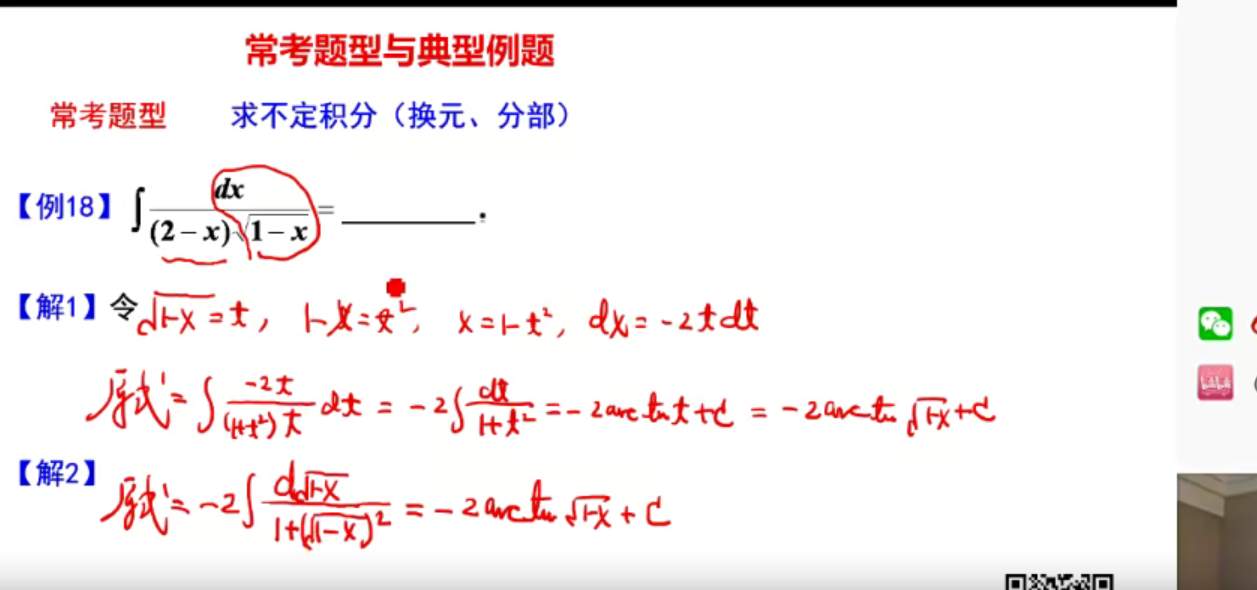 常考题型与典型例题
常考题型 求不定积分（换元、分部）
【例18】∫ dx / ((2 − x)√(1 − x)) = ________.
【解1】令 √(1-x) = t, 1-x = t², x = 1-t², dx = -2t dt
原式 = ∫ -2t / ((1+t²) t) dt = -2∫ dt / (1+t²) = -2 arctan t + C = -2 arctan √(1-x) + C
【解2】原式 = -2∫ d√(1-x) / (1+(√(1-x))²) = -2 arctan √(1-x) + C